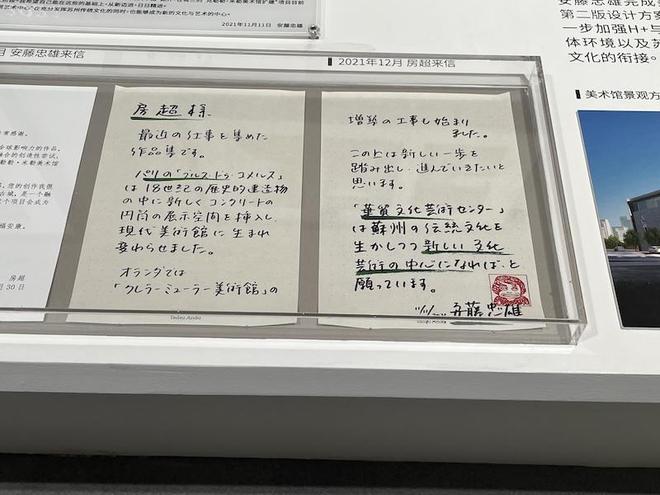 2021年11月11日　安藤忠雄
月 安藤忠雄来信
2021年12月 房超来信
房超様
最近の仕事を集めた
作品集です。
パリの「ブルス・ドゥ・コメルス」
は18世紀の歴史的建造物
の中に新しくコンクリートの
円筒の展示空間を挿入し、
現代美術館に生まれ
変わらせました。
オランダでは
「クレラー・ミューラー美術館」の
Tadao Ando
増築の工事も始まり
ました。
この上は新しい一歩を
踏み出し、進んでいきたいと
思います。
「華貿文化芸術センター」
は蘇州の伝統文化を
生かしつつ新しい文化
芸術の中心になれば、と
願っています。
安藤忠雄
房超
月30日
安藤忠雄完成
第二版设计方案
一步加强H+与
体环境以及苏
文化的衔接。
美术馆景观方